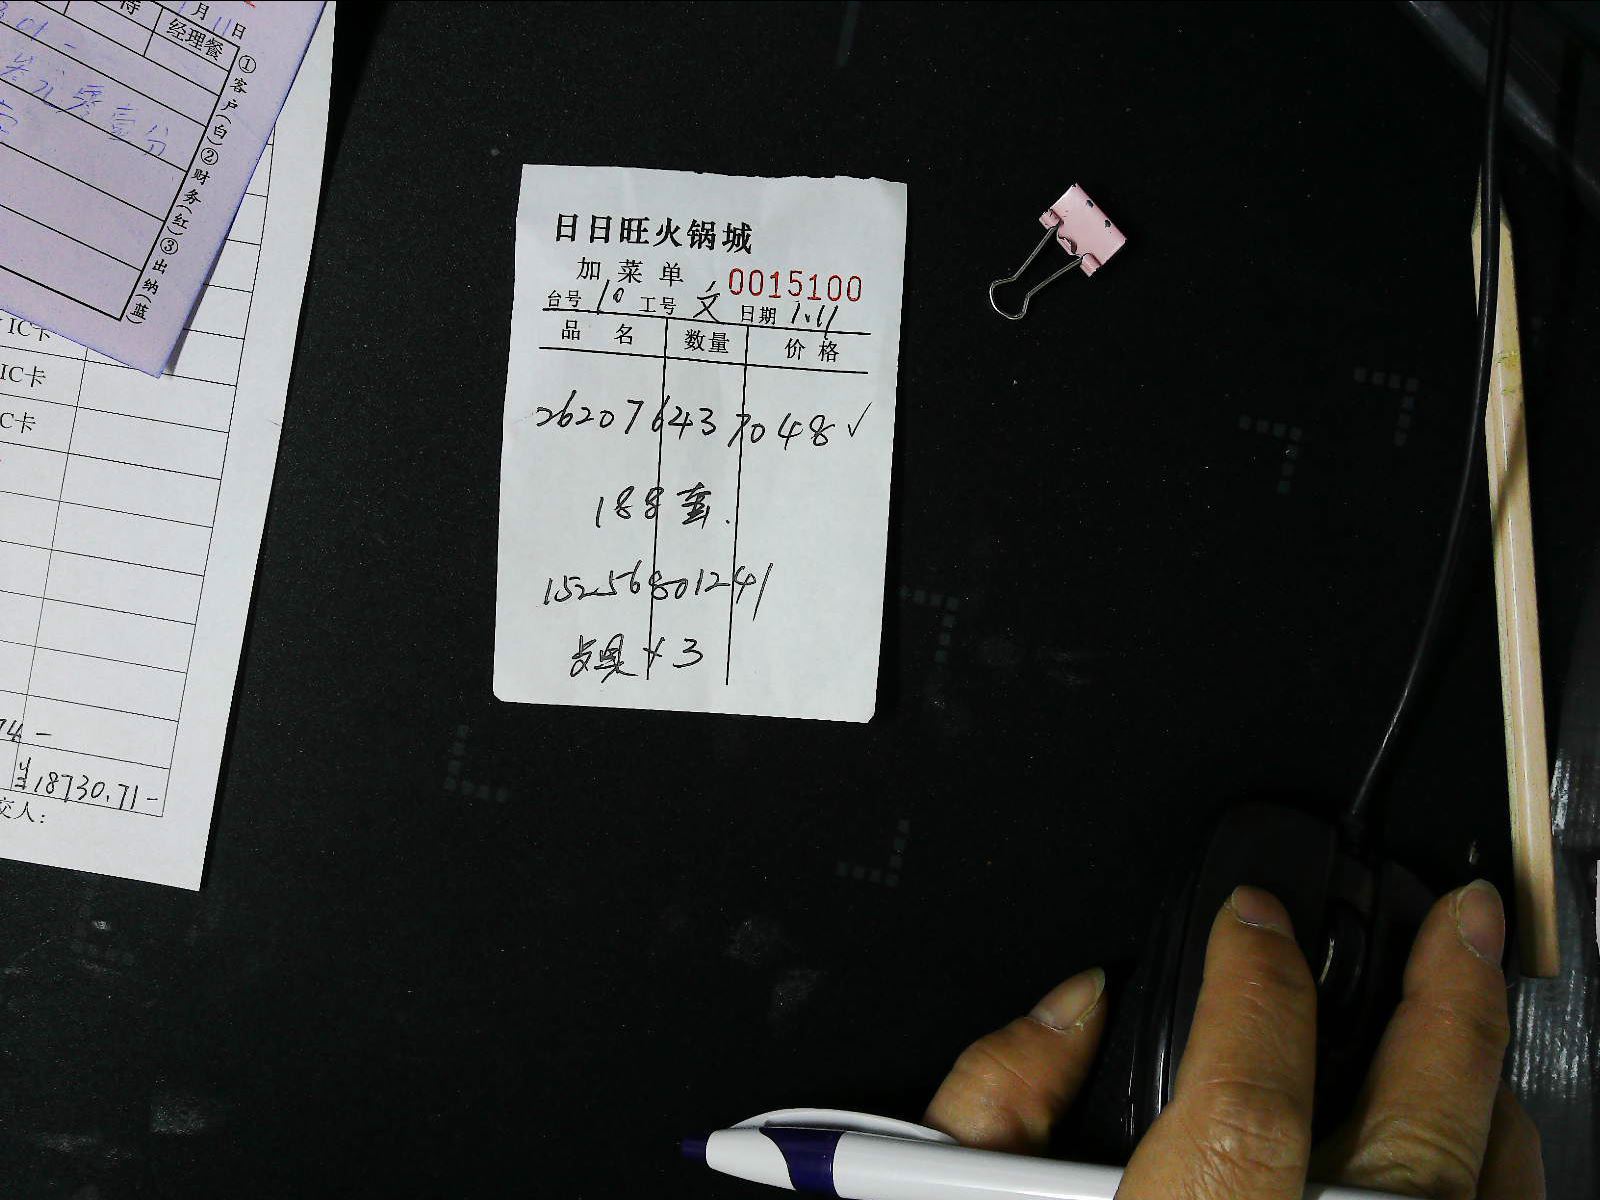 月11日
待
经理餐
叁元零壹分
①客户(白)②财务(红)③出纳(蓝)
IC卡
IC卡
C卡
74-
18730.71-
交人:
日日旺火锅城
加菜单 0015100
台号 10 工号 文 日期 1.11
品名 数量 价格
262076437048√
188套.
15256801241
×3